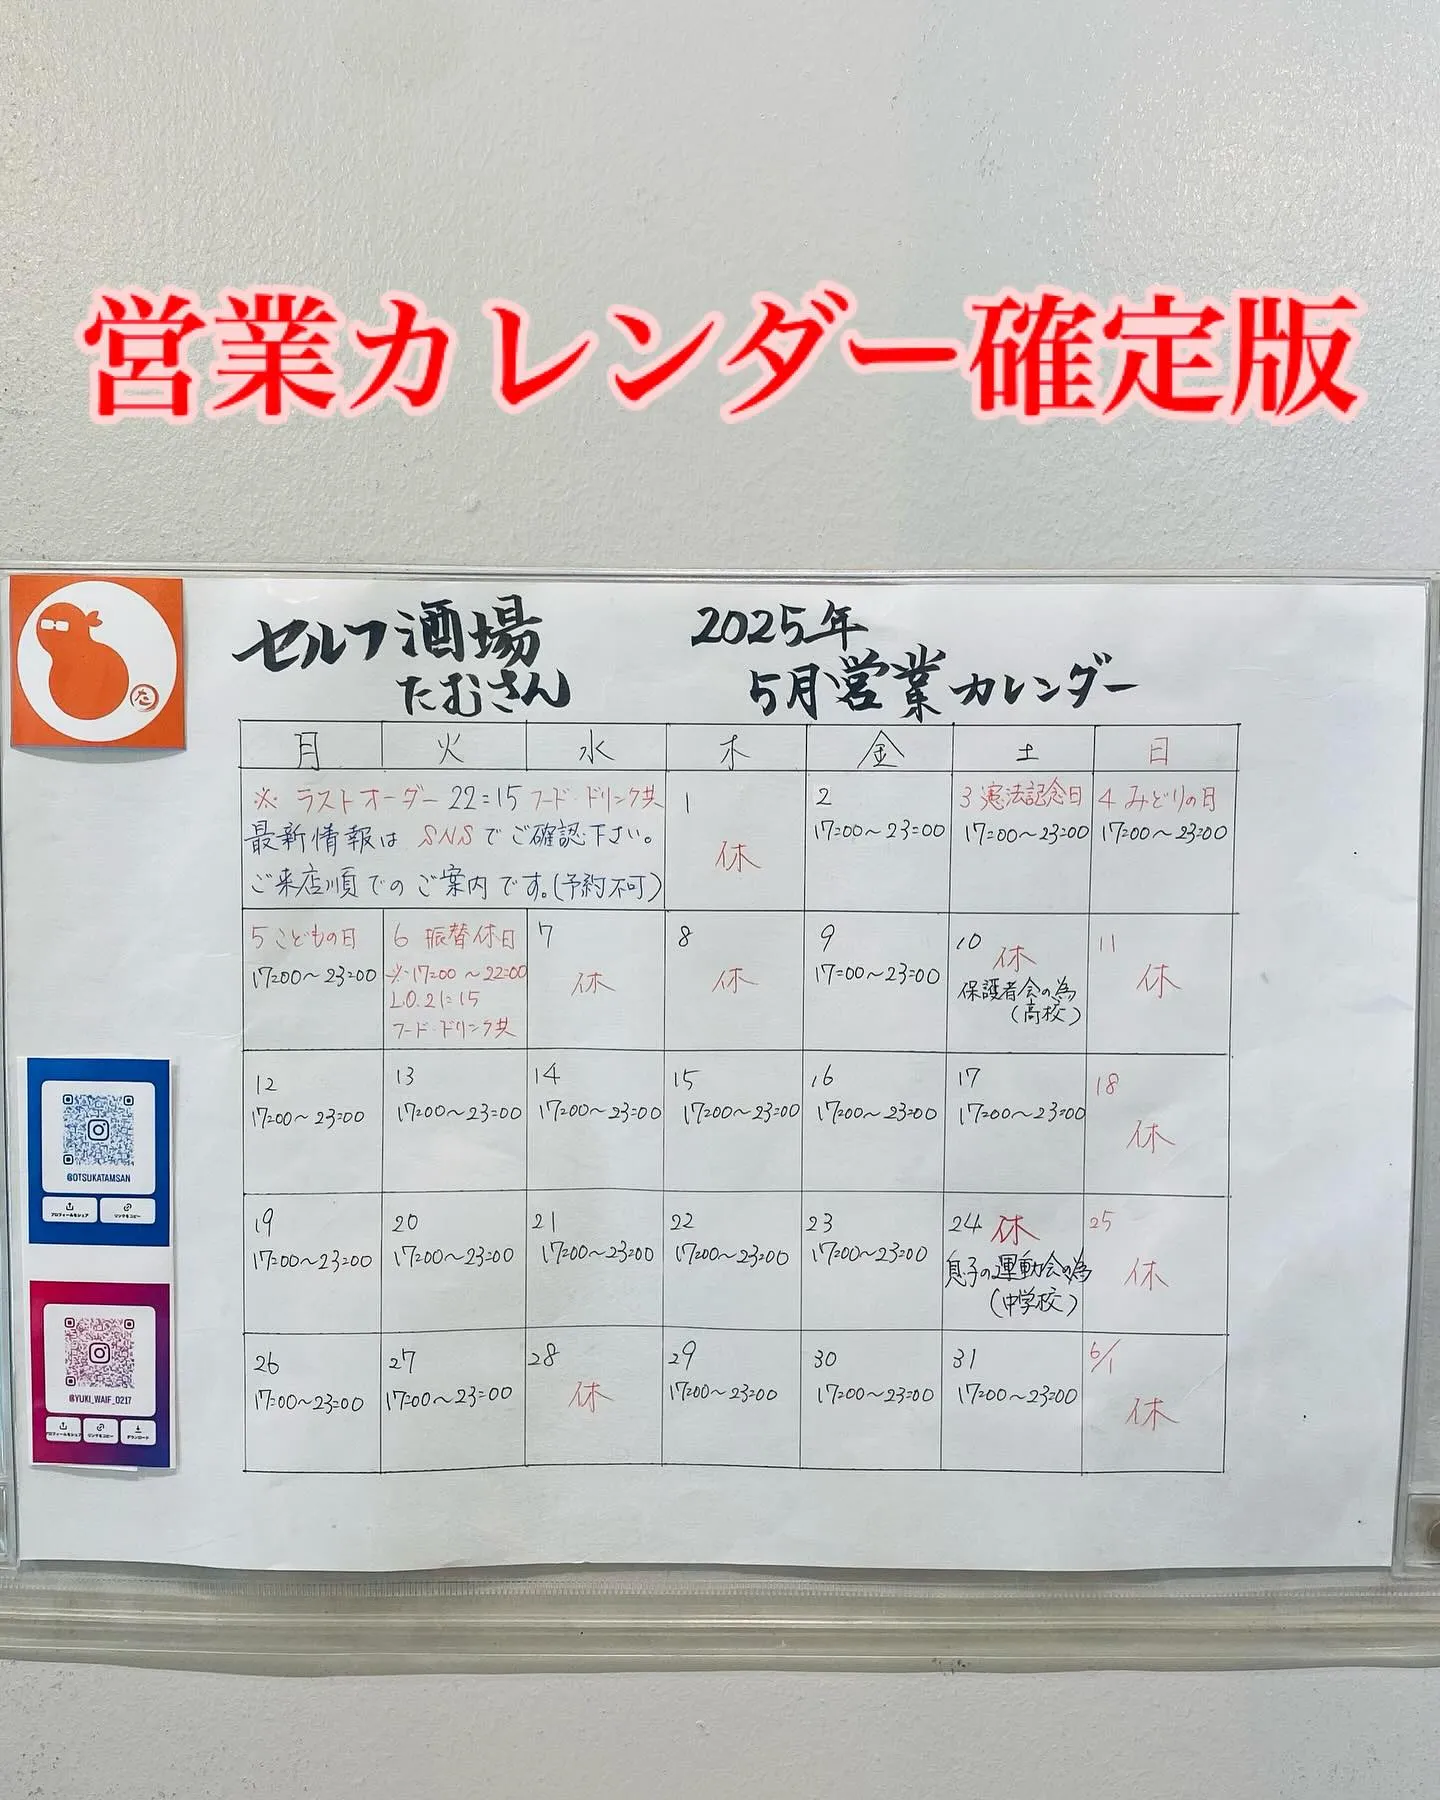 営業カレンダー確定版
セルフ酒場
たむさん
2025年
5月営業カレンダー
月 火 水 木 金 土 日
※ ラストオーダー 22:15 フード・ドリンク共
最新情報は SNSでご確認下さい。
ご来店順でのご案内です。(予約不可)
1
休
2
17:00〜23:00
3 憲法記念日
17:00〜23:00
4 みどりの日
17:00〜23:00
5 こどもの日
17:00〜23:00
6 振替休日
※17:00〜22:00
L.O.21:15
フード・ドリンク共
7
休
8
休
9
17:00〜23:00
10 休
保護者会の為
(高校)
11
休
12
17:00〜23:00
13
17:00〜23:00
14
17:00〜23:00
15
17:00〜23:00
16
17:00〜23:00
17
17:00〜23:00
18
休
19
17:00〜23:00
20
17:00〜23:00
21
17:00〜23:00
22
17:00〜23:00
23
17:00〜23:00
24 休
息子の運動会の為
(中学校)
25
休
26
17:00〜23:00
27
17:00〜23:00
28
休
29
17:00〜23:00
30
17:00〜23:00
31
17:00〜23:00
6/1
休
た
@OTSUKATAMSAN
プロフィールをシェア リンクをコピー
@YUKI_WAIF_0217
プロフィールをシェア リンクをコピー ダウンロード